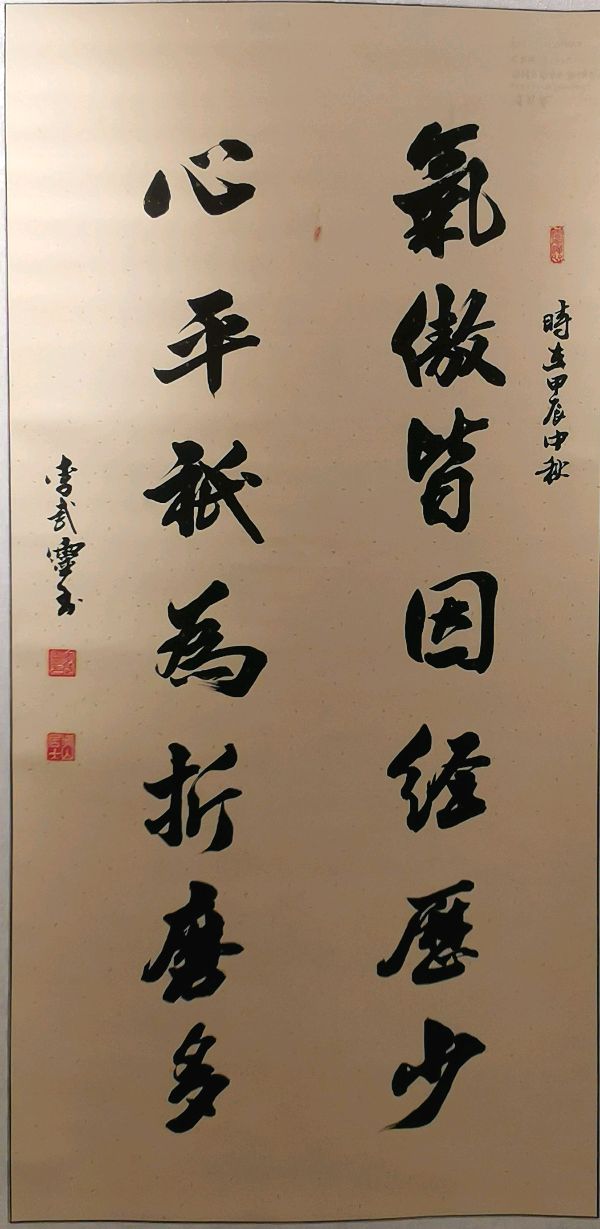 時在甲辰中秋
氣傲皆因經歷少
心平祇為折磨多
李武靈書